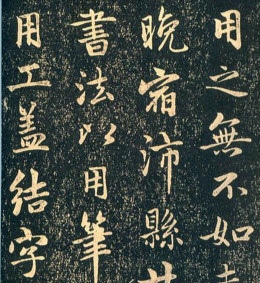 用之無不如
晚宿沛縣
書法以用筆
用工蓋結字